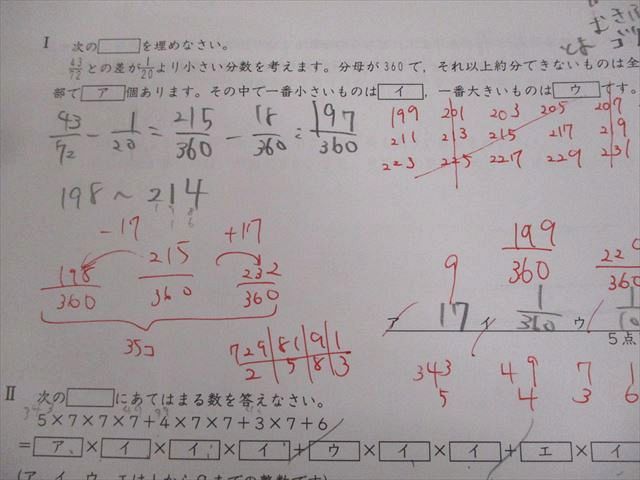 むき
とよ
I 次の□を埋めなさい。
43/72との差が1/20より小さい分数を考えます。分母が360で,それ以上約分できないものは全
部でア個あります。その中で一番小さいものはイ,一番大きいものはウです。
43/72 - 1/20 = 215/360 - 18/360 = 197/360
199 201 203 205 207
211 213 215 217 219
223 225 227 229 231
198 ~ 214
-17 +17
198/360 215/360 232/360
35コ
9 199/360
ア 17 イ 1/360 ウ
5点
729 | 81 | 9 | 1
2 | 5 | 8 | 3
343 49 7 1
5 4 3 6
II 次の□にあてはまる数を答えなさい。
5×7×7×7+4×7×7+3×7+6
=ア×イ×イ×イ+ウ×イ×イ+エ×イ